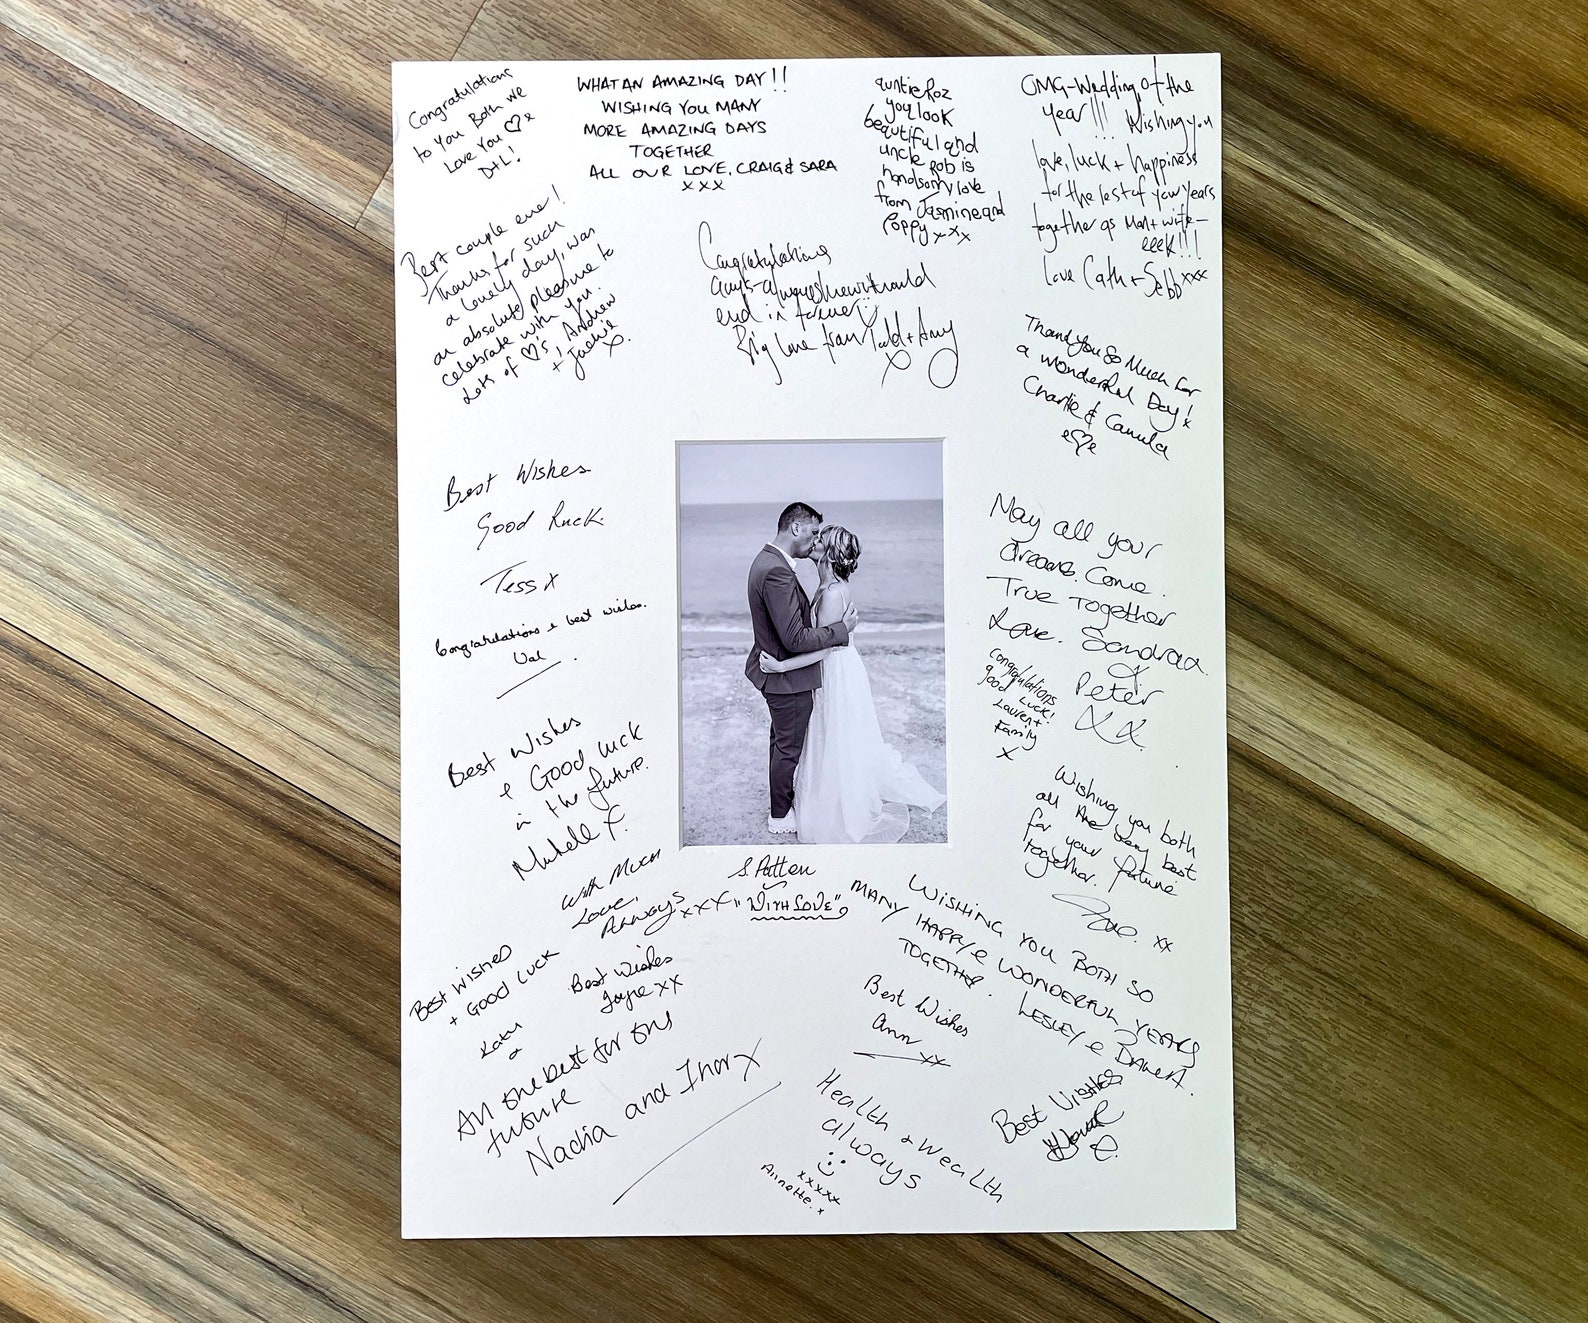 Congratulations
to You Both we
Love You
D+L!
WHAT AN AMAZING DAY!!
WISHING YOU MANY
MORE AMAZING DAYS
TOGETHER
ALL OUR LOVE, CRAIG & SARA
xxx
auntie Roz
you look
beautiful and
uncle Rob is
handsom love
from Jasmine and
Poppy xxx
OMG-Wedding of the
year!!! Wishing you
love, luck + happiness
for the rest of your years
together as Man + wife-
eeek!!!
Love Cath + Sebb xxx
Best couple ever!
Thanks for such
a lovely day, was
an absolute pleasure to
celebrate with you.
Lots of ♡'s, Andrew
+ Jackie
x.
Congratulations
Guys-always knew it would
end in forever :)
Big love from Todd + Amy
x
Thank you So Much For
a wonderful Day! x
Charlie & Camilla
Best Wishes
Good Luck.
Tess x
Congratulations & best wishes.
Val
May all your
dreams. Come.
True Together
Love. Sandraa.
& Peter
XX.
Congratulations
good luck!
Lauren +
Family
x
Best Wishes
& Good luck
in the future.
Michell X.
Wishing you both
all the very best
for your future
together.
xx
With Much
Love,
Always xxx
S. Patten
"WITH LOVE"
WISHING YOU BOTH SO
MANY HAPPY & WONDERFUL YEARS
TOGETHER. LESLEY &
Best Wishes
+ GOOD LUCK
Katy
Best Wishes
Joyce xx
Best Wishes
Ann
xx
All the best for the
future
Nadia and Thor x
Health + Wealth
always
xxxxx
Annette. x
Best Wishes